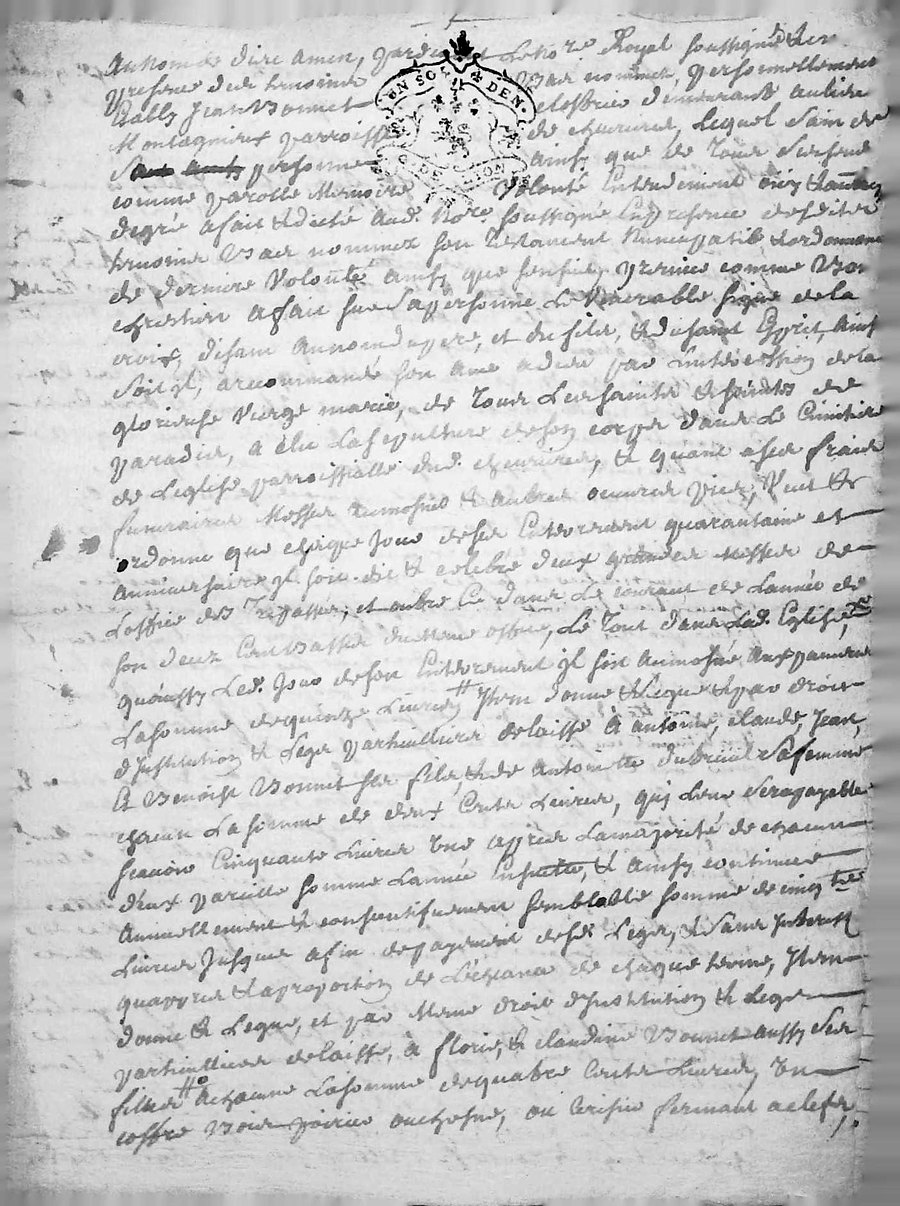 Au nom de dieu amen, pardevant Le no.re Royal soussigné & en
presence des temoins bas nommés, personnellement
Estably Jean Bonnet demeurant au lieu
Montagnieux parroisse de chevrieres, Lequel sain de
sa personne ainsy que de Tous ses sens
comme parolle Memoire volonté Entendement
degré a fait & dicté aud. No.re soussigné En presence desdits
temoins bas nommez son Testament Nuncupatif & ordonnance
de derniere Volonté ainsy que sensuit, premier comme bon
chrestien a fait sur sa personne Le Venerable signe de la
croix, disant au nom du pere, et du fils, & du saint Esprit, ainsy
soit il, a recommandé son ame a dieu par Lintercession de la
glorieuse Vierge marie, de Tous Les saints & saintes de
paradis, a élu La sepulture de son corps dans Le Cimitiere
de Leglise parroissialle dud. chevrieres, & quant a ses fraix
funeraires Messes aumosnes & autres oeuvres pies, Veut &
ordonne que chaque jour de ses Enterrement quarantaine et
anniversaire il soit dit & celebré deux grandes Messes de
Loffice des Trepassés, et outre ce dans Le courant de Lannée de
son deuz Cent basses du meme office, Le Tout dans Lad. Eglise,
quaussy Led. jour de son Enterrement il soit aumosné aux pauvres
La somme de quinze Livres Item donne & Legue & par droit
d'Institution & Legs particulliers delaisse à antoine, claude, Jean,
& Benoist Bonnet ses fils, & de Antoinette dubreuil sa femme
chacun La somme de deux Cents Livres, qui Leur sera payable
scavoir Cinquante Livres Une apprès La majorité de chacun
d'eux pareille somme Lannée Ensuitte, & ainsy continuer
annuellement & consecutifvement semblable somme de cinq.te
Livres Jusques a fin de payement desd. Legs, & sans Interest
quapprès & a proportion de Lécheance de chaque terme, Item
donne & Legue, et par Meme droit d'Institution & Legs
particulliers delaisse, à florie, & claudine Bonnet aussy ses
filles a chacune La somme de quatre Cents Livres, Un
coffre bois poirier ou chesne, ou Cerisier fermant a clefs,
EN SOL & DEN